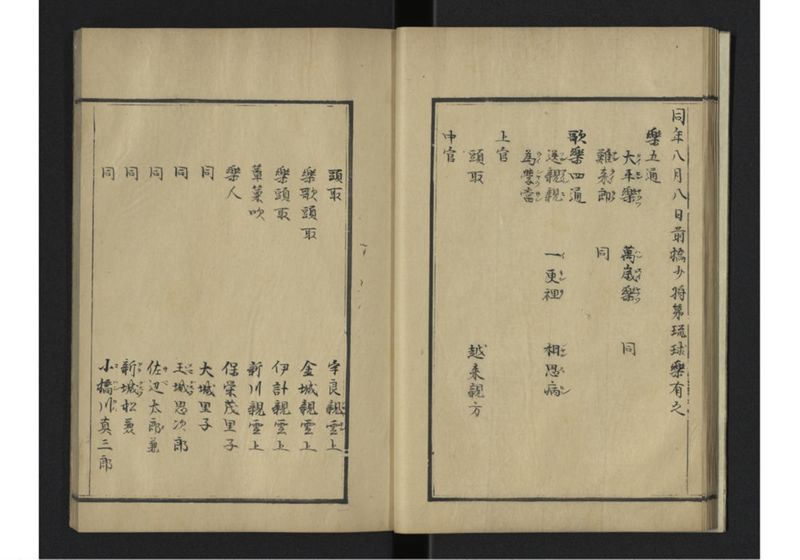 同年八月八日前橋少将第琉球樂有之
樂五通
大平樂 萬歳樂 同
難来郎 同
歌樂四通
送親親 一更裡 相思病
為學當
上官
頭取 越来親方
中官
頭取 宇良親雲上
樂歌頭取 金城親雲上
樂頭取 伊計親雲上
篳篥吹 新川親雲上
樂人 保榮茂里子
同 大城里子
同 玉城思次郎
同 佐辺太郎兼
同 新城松兼
同 小橋川真三郎